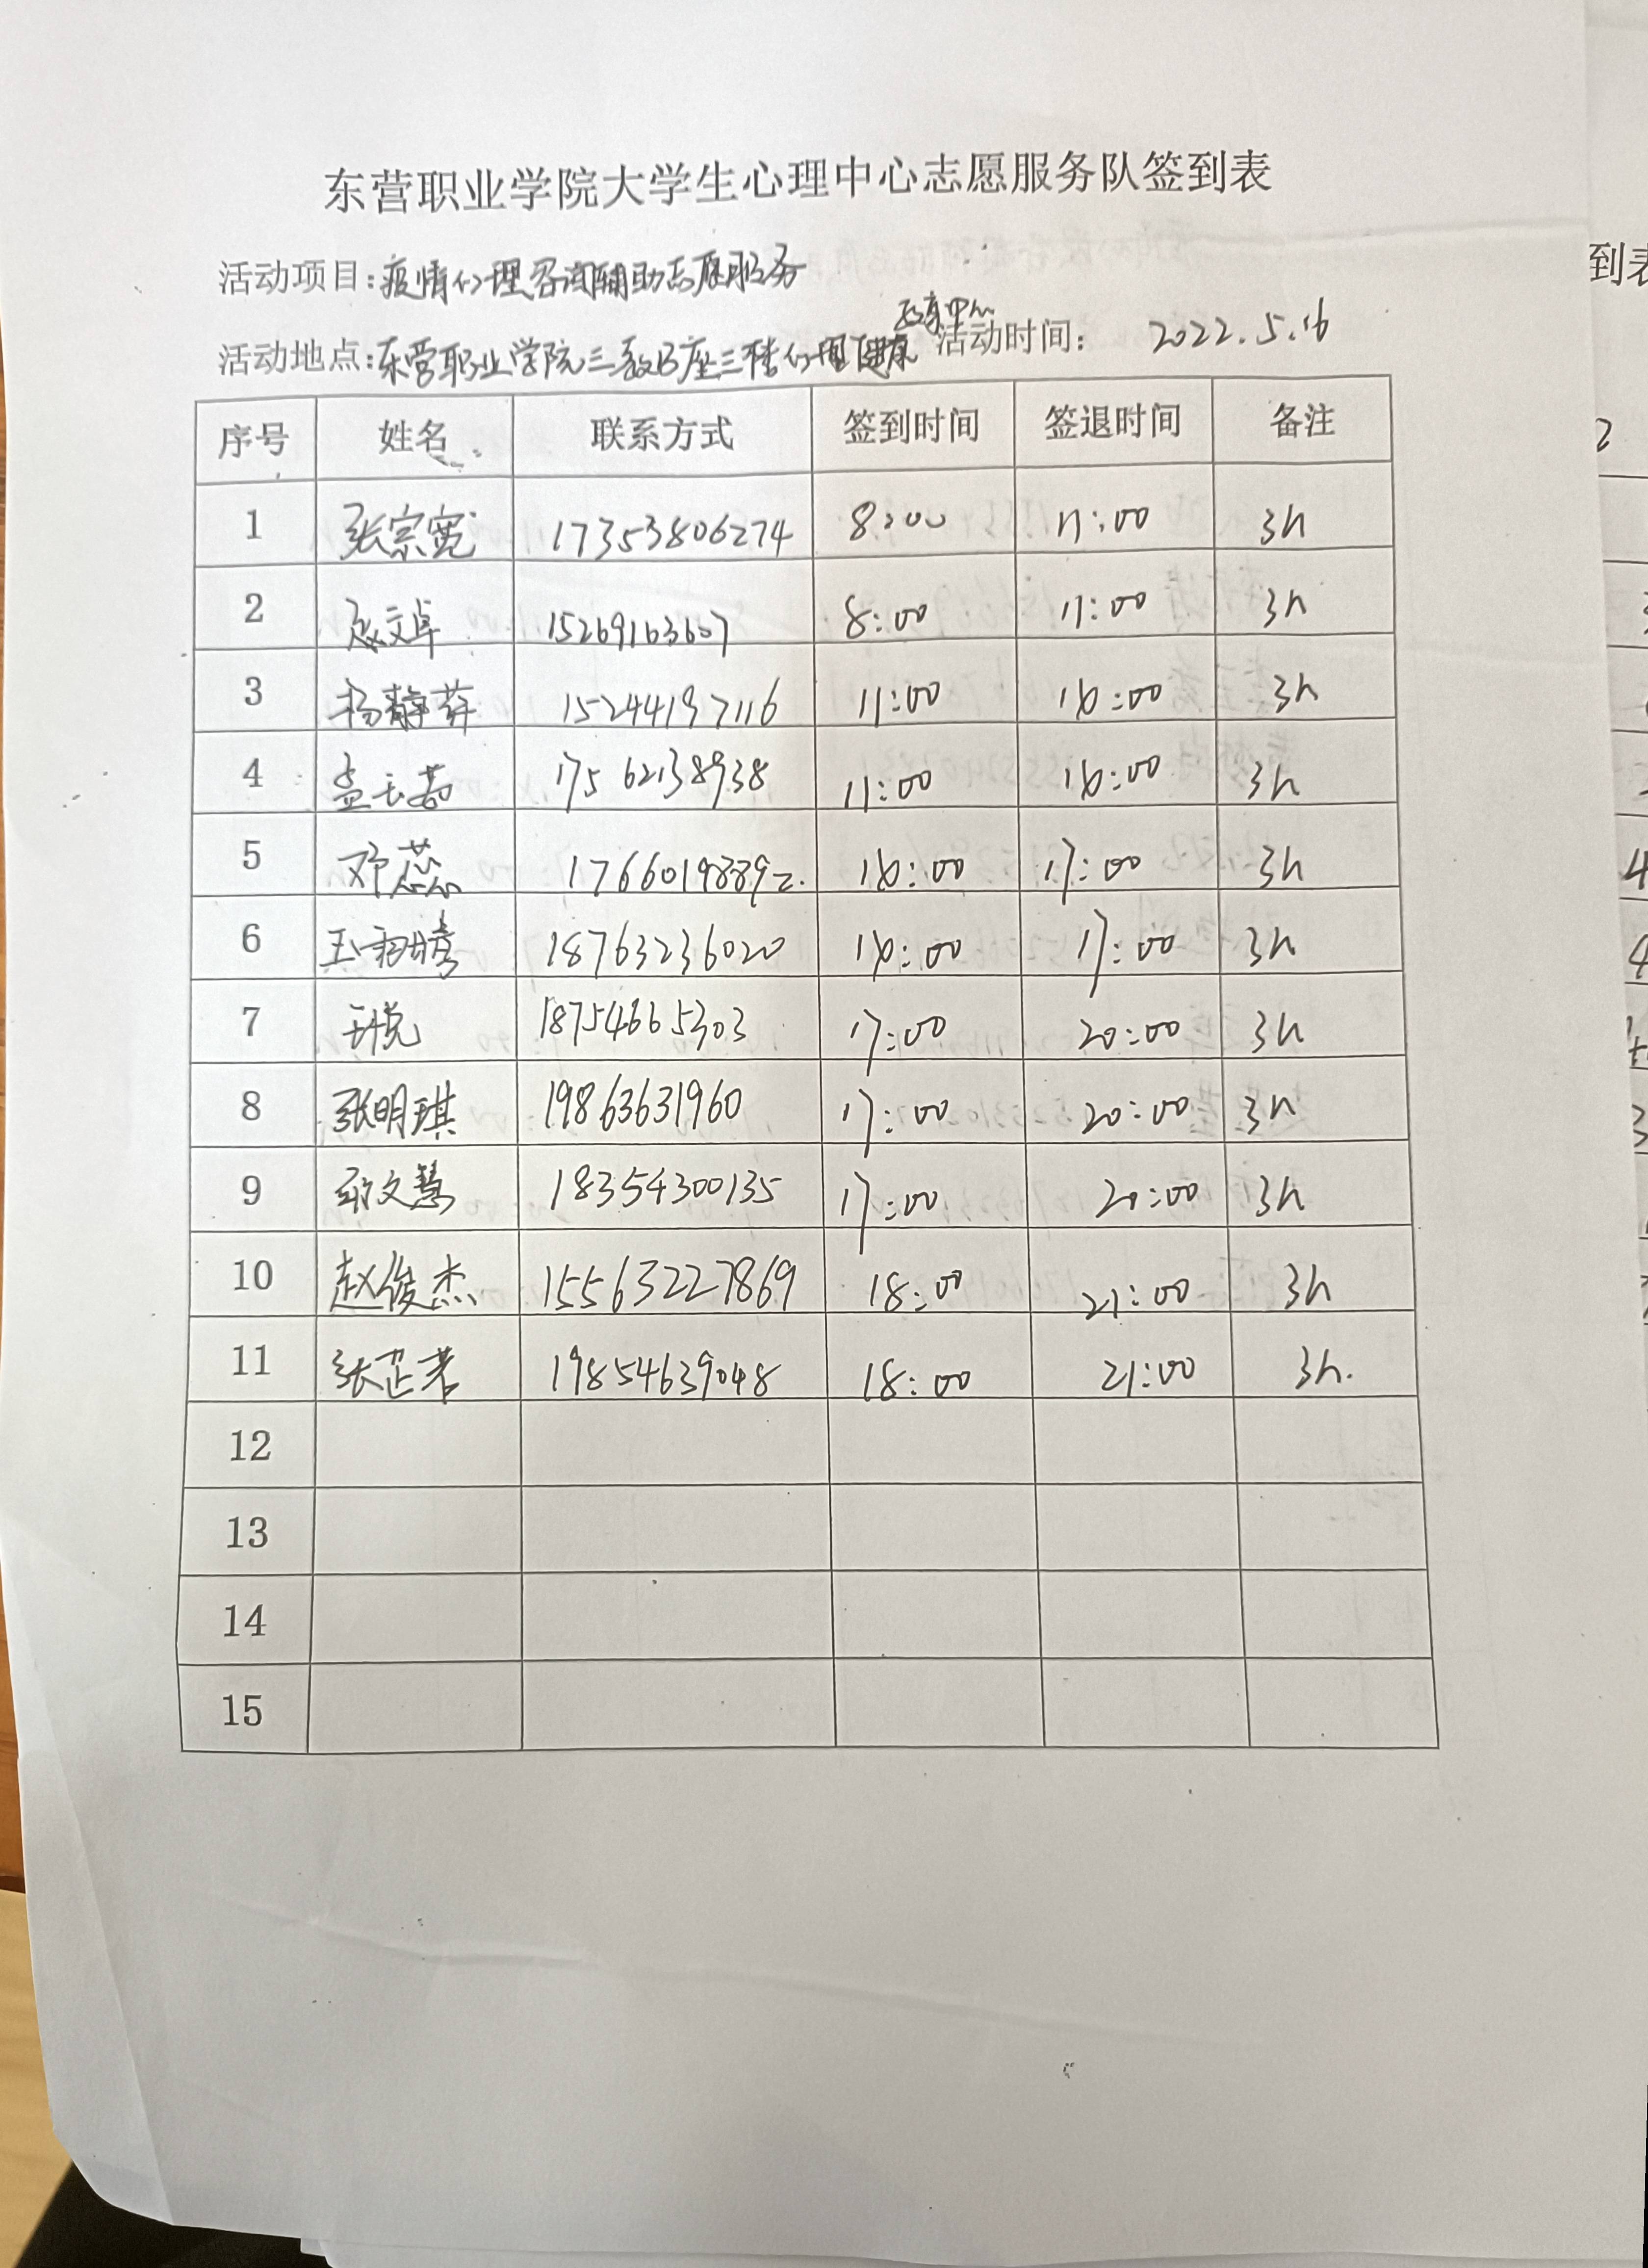 东营职业学院大学生心理中心志愿服务队签到表
活动项目：疫情心理咨询辅助志愿服务
活动地点：东营职业学院三教B座三楼心理健康教育中心 活动时间： 2022.5.16
序号 姓名 联系方式 签到时间 签退时间 备注
1 张宗宽 17353806274 8:00 11:00 3h
2 文卓 15269163607 8:00 11:00 3h
3 杨静 15244197116 11:00 16:00 3h
4 孟 17562138938 11:00 16:00 3h
5 邓蕊 17660198892. 16:00 17:00 3h
6 18763236020 16:00 17:00 3h
7 王悦 18754665303 17:00 20:00 3h
8 张明琪 19863631960 17:00 20:00 3h
9 文慧 18354300135 17:00 20:00 3h
10 赵俊杰 15563227869 18:00 21:00 3h
11 张芷若 19854639048 18:00 21:00 3h.
12
13
14
15
到表
2
4
4
3